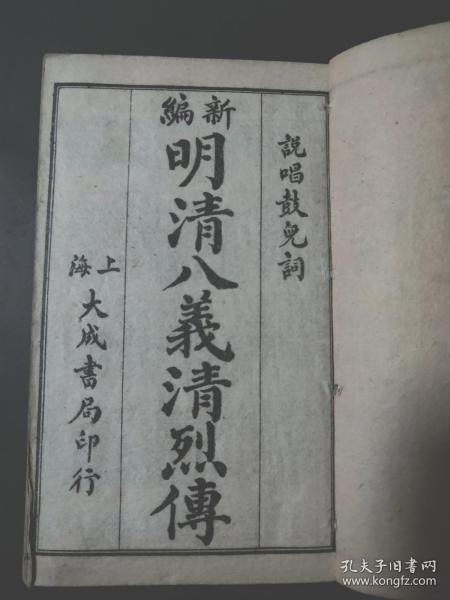 說唱鼓兒詞
新編
明清八義清烈傳
上海
大成書局印行
孔夫子旧书网
www.kongfz.com